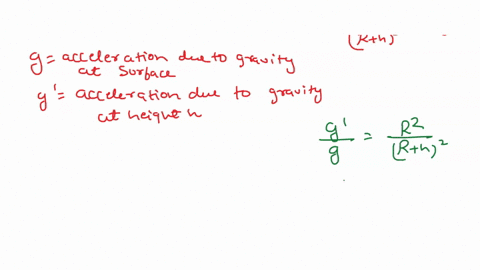 (R+h)
g = acceleration due to gravity
at surface
g' = acceleration due to gravity
at height h
g'/g = R²/(R+h)²